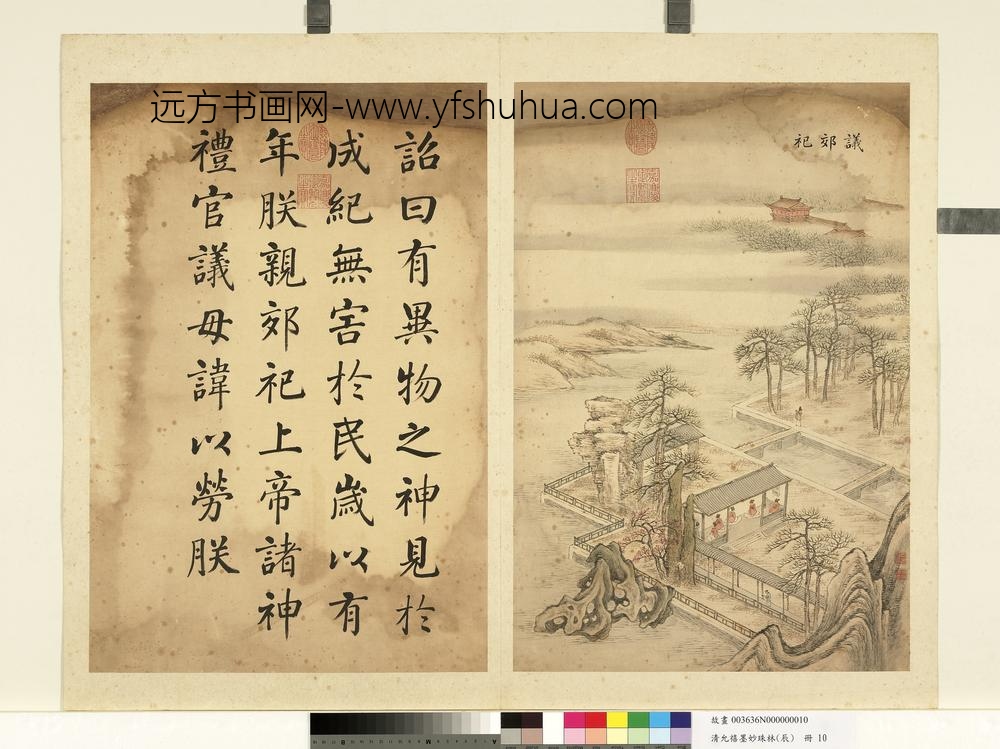 远方书画网-www.yfshuhua.com
議郊祀
詔曰有異物之神見於
成紀無害於民歲以有
年朕親郊祀上帝諸神
禮官議毋諱以勞朕
故畫 003636N000000010
清允禧墨妙珠林(辰) 冊 10